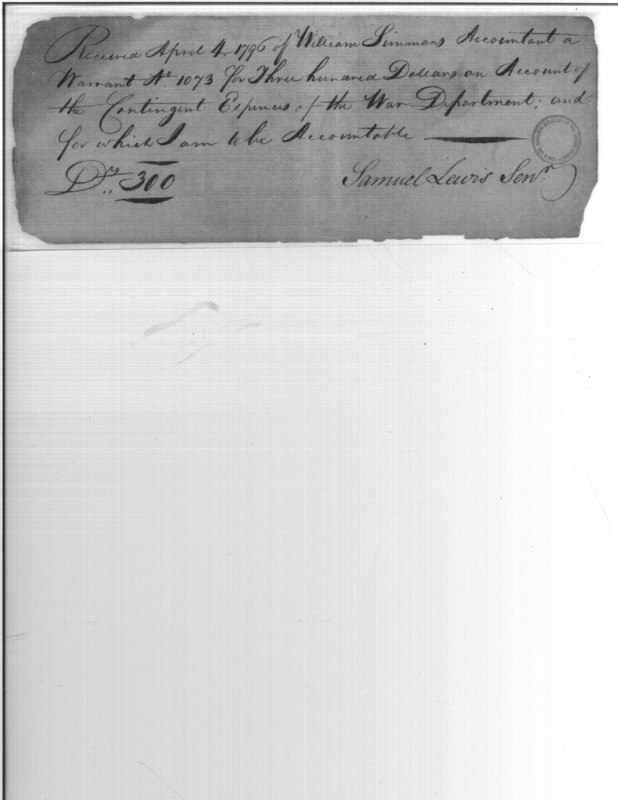 Received April 4, 1796 of William Simmons Accountant a
Warrant No. 1073 for Three hundred Dollars on Account of
the Contingent Expences of the War Department; and
for which I am to be Accountable
Drs. 300 Samuel Lewis Senr.